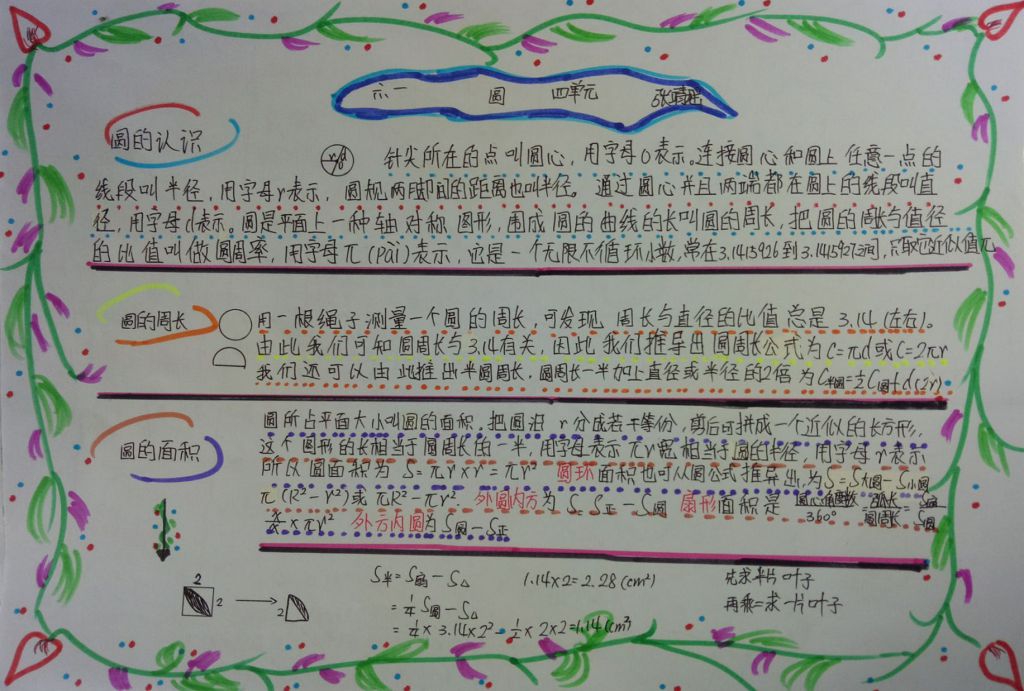 六一 圆 四单元
圆的认识
r d
针尖所在的点叫圆心，用字母O表示。连接圆心和圆上任意一点的
线段叫半径，用字母r表示，圆规两脚间的距离也叫半径。通过圆心并且两端都在圆上的线段叫直
径，用字母d表示。圆是平面上一种轴对称图形，围成圆的曲线的长叫圆的周长，把圆的周长与值径
的比值叫做圆周率，用字母π(pài)表示，它是一个无限不循环小数，常在3.1415926到3.1415927之间，只取它近似值π
圆的周长
用一根绳子测量一个圆的周长，可发现周长与直径的比值总是3.14(左右)。
由此我们可知圆周长与3.14有关，因此我们推导出圆周长公式为C=πd或C=2πr
我们还可以由此推出半圆周长，圆周长一半加上直径或半径的2倍为C半圆=½C圆+d(2r)
圆的面积
圆所占平面大小叫圆的面积。把圆沿r分成若干等份，剪后可拼成一个近似的长方形，
这个图形的长相当于圆周长的一半，用字母表示πr宽相当于圆的半径，用字母r表示
所以圆面积为S=πr×r=πr² 圆环面积也可从圆公式推导出，为S=S大圆-S小圆
π(R²-r²)或πR²-πr² 外圆内方为S=S正-S圆 扇形面积是圆心角度数/360°=弧长/圆周长=S扇/S圆
×πr² 外方内圆为S圆-S正
2
2
2
S半=S扇-S△
=¼S圆-S△
=¼×3.14×2²-½×2×2=1.14(cm²)
1.14×2=2.28(cm²)
先求半片叶子
再乘二求一片叶子